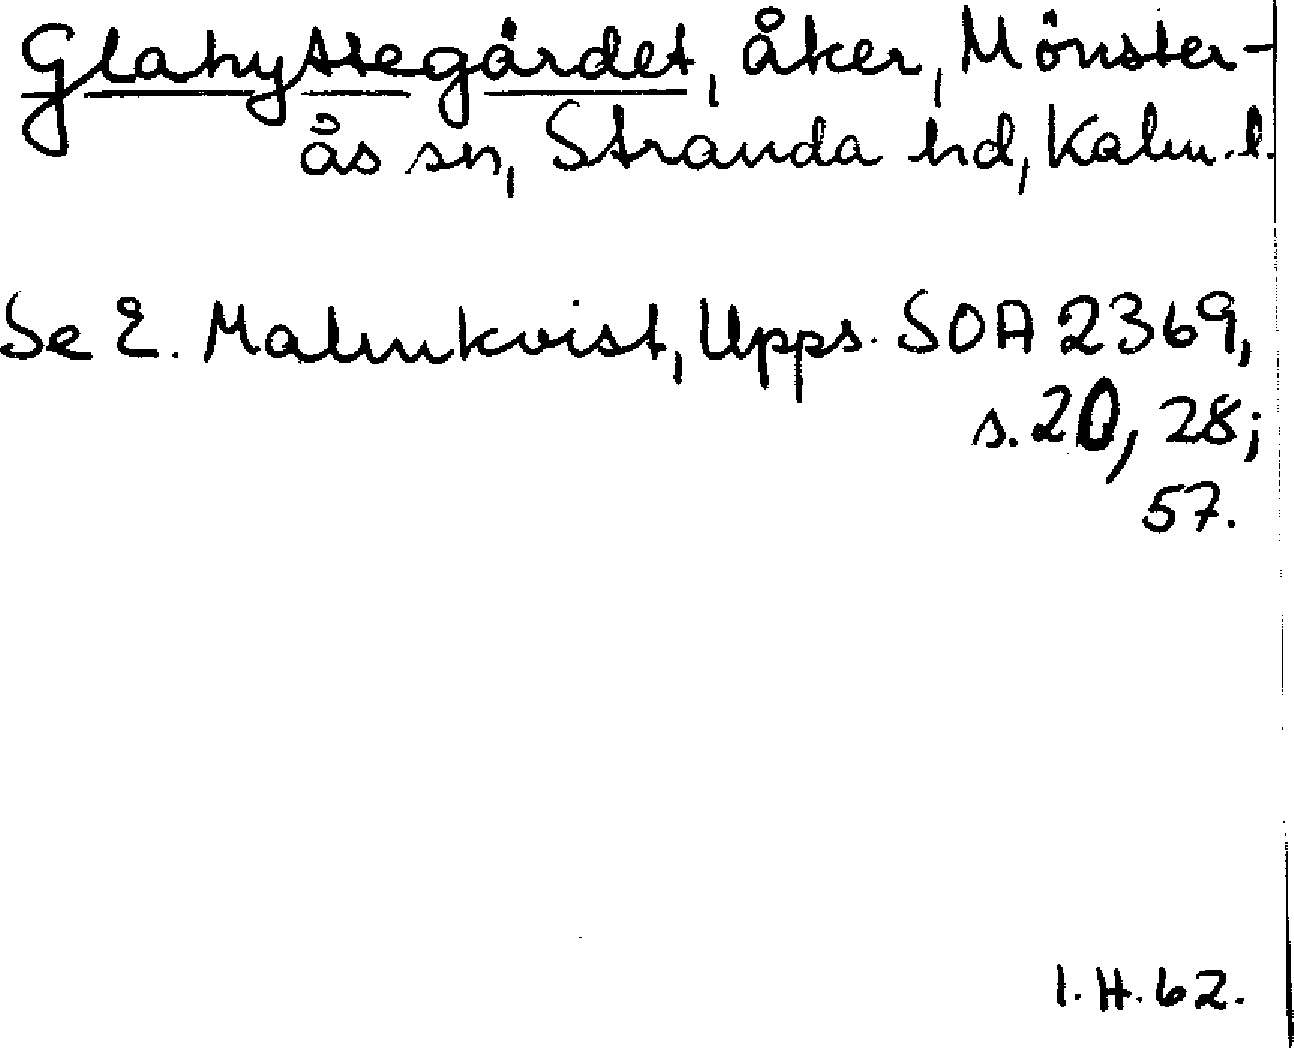 Glahyttegärdet, åker, Mönster-
ås sn, Stranda hd, Kalm. l.
Se E. Malmkvist, Upps. SOA 2369,
s. 20, 28;
57.
I.H. 62.